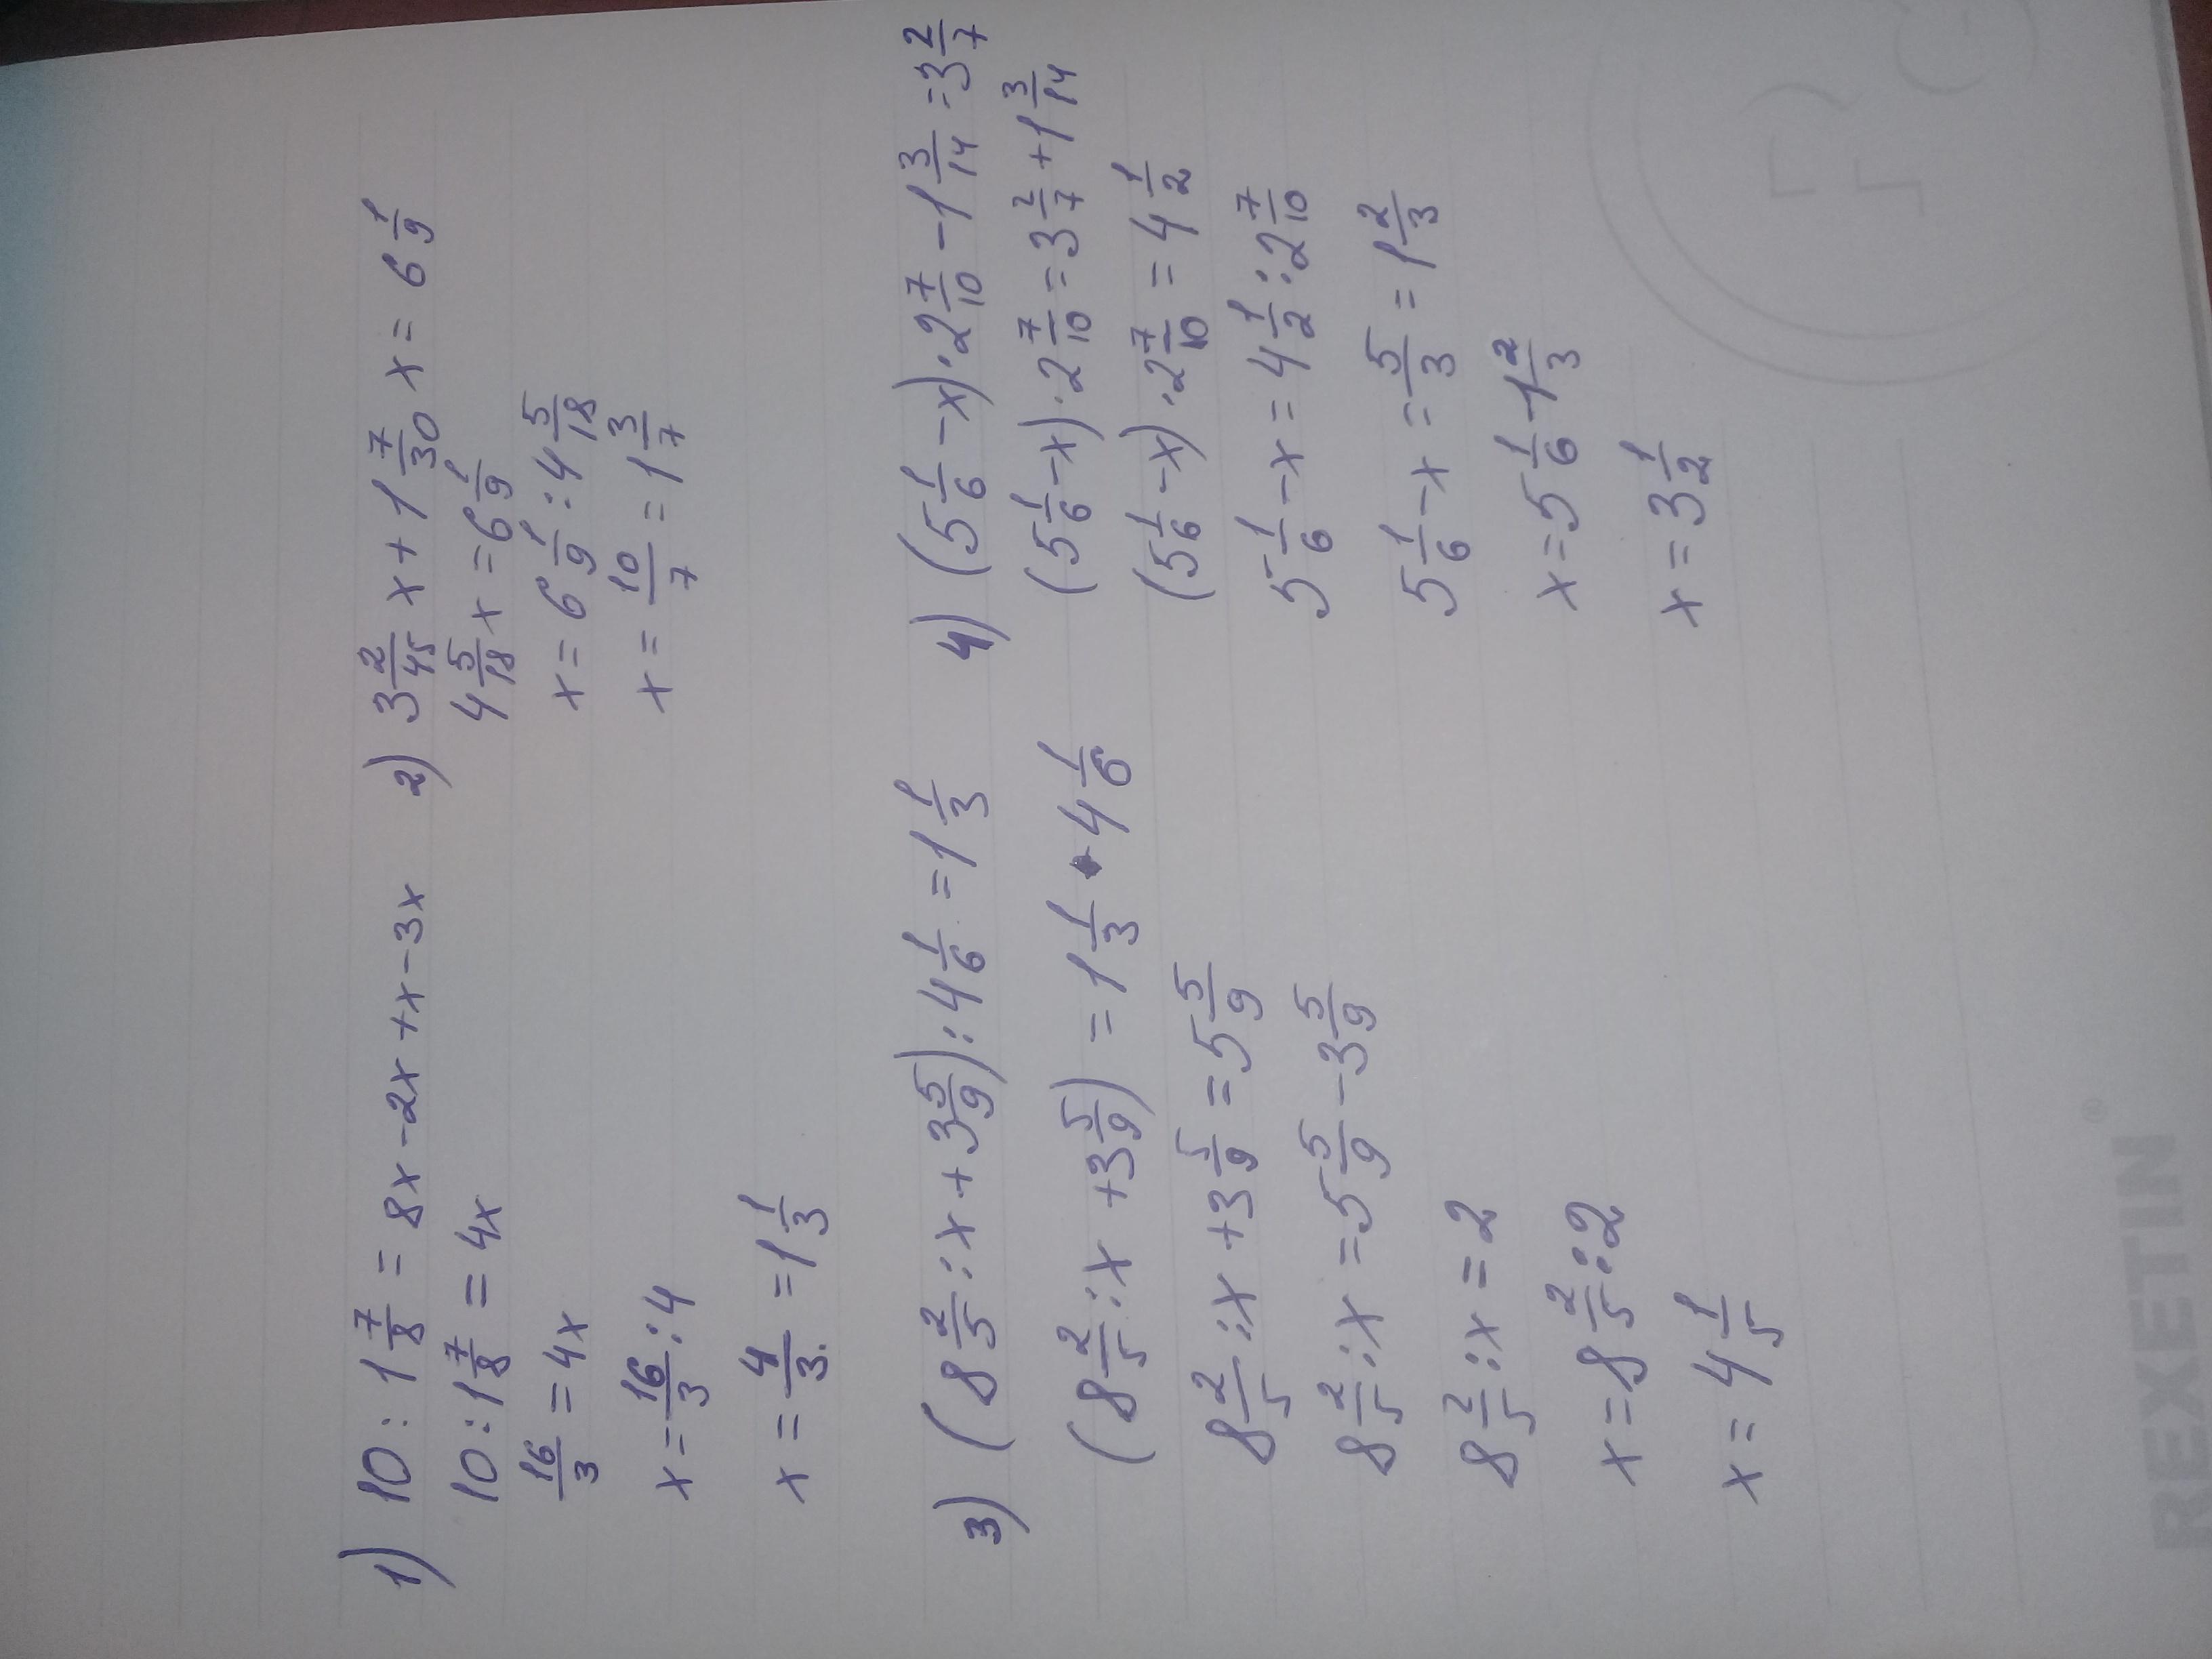 1) 10 : 1 7/8 = 8x - 2x + x - 3x
10 : 1 7/8 = 4x
16/3 = 4x
x = 16/3 : 4
x = 4/3 = 1 1/3
2) 3 2/45 x + 1 7/30 x = 6 1/9
4 5/18 x = 6 1/9
x = 6 1/9 : 4 5/18
x = 10/7 = 1 3/7
3) (8 2/5 : x + 3 5/9) : 4 1/6 = 1 1/3
(8 2/5 : x + 3 5/9) = 1 1/3 · 4 1/6
8 2/5 : x + 3 5/9 = 5 5/9
8 2/5 : x = 5 5/9 - 3 5/9
8 2/5 : x = 2
x = 8 2/5 : 2
x = 4 1/5
4) (5 1/6 - x) · 2 7/10 - 1 3/14 = 3 2/7
(5 1/6 - x) · 2 7/10 = 3 2/7 + 1 3/14
(5 1/6 - x) · 2 7/10 = 4 1/2
5 1/6 - x = 4 1/2 : 2 7/10
5 1/6 - x = 5/3 = 1 2/3
x = 5 1/6 - 1 2/3
x = 3 1/2
REXETIN®